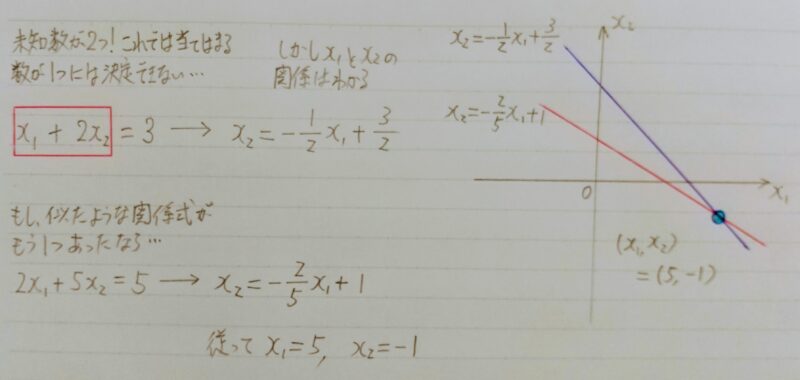 未知数が2つ!これでは当てはまる
数が1つには決定できない…
しかしx₁とx₂の
関係はわかる
x₁ + 2x₂ = 3 → x₂ = -1/2 x₁ + 3/2
もし、似たような関係式が
もう1つあったなら…
2x₁ + 5x₂ = 5 → x₂ = -2/5 x₁ + 1
従って x₁ = 5, x₂ = -1
x₂ = -1/2 x₁ + 3/2
x₂
x₂ = -2/5 x₁ + 1
0
x₁
(x₁, x₂)
= (5, -1)